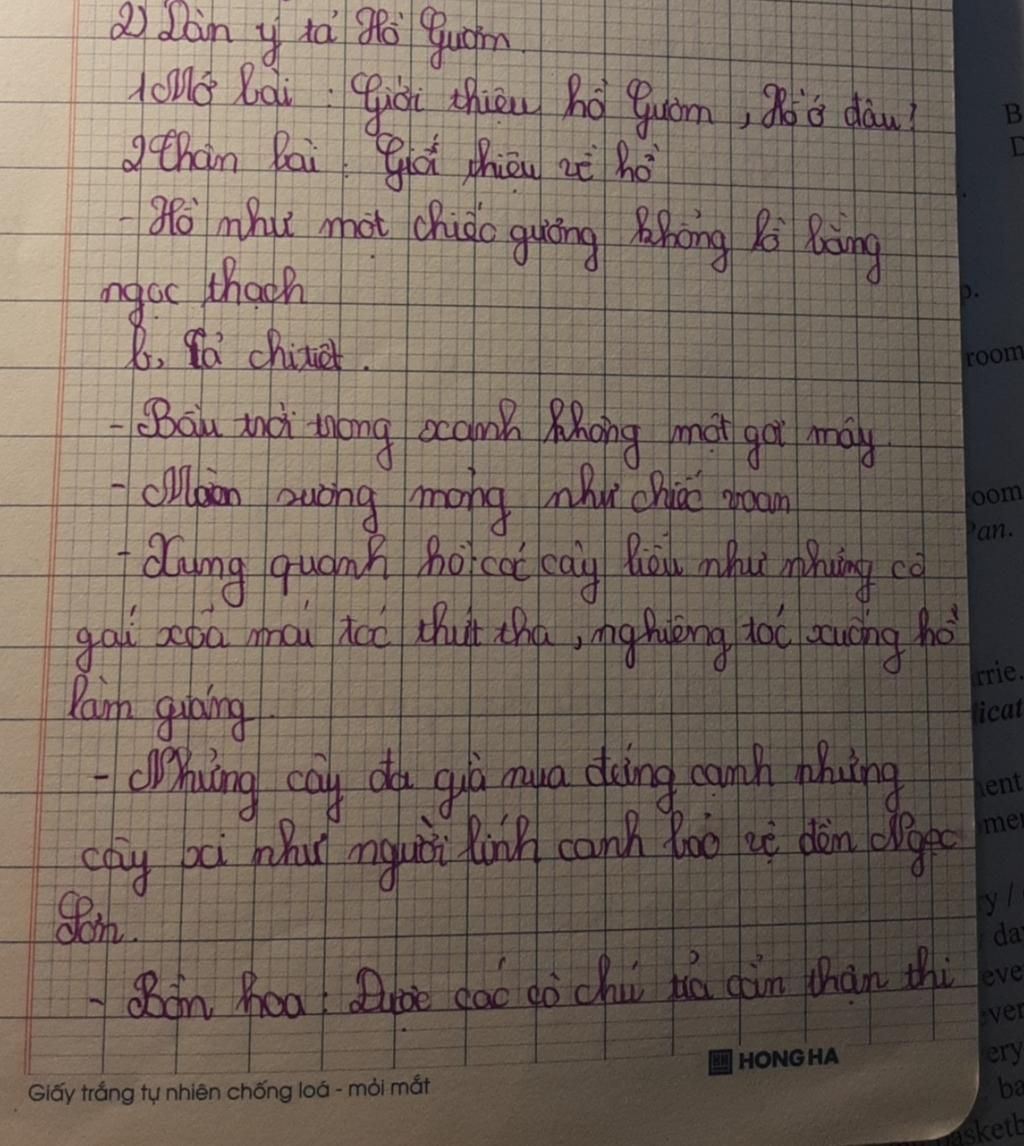 2) Dàn ý tả Hồ Gươm.
1 Mở bài : Giới thiệu hồ Gươm, Hồ ở đâu?
2 Thân bài : Giới thiệu về hồ
- Hồ như một chiếc gương khổng lồ bằng
ngọc thạch
b, Tả chi tiết.
- Bầu trời trong xanh không một gợi mây
- Màn sương mỏng như chiếc voan
- Xung quanh hồ các cây liễu như những cô
gái xoã mái tóc thướt tha, nghiêng tóc xuống hồ
làm gương.
- Những cây đa già nua đứng cạnh những
cây xi như người lính canh bảo vệ đền Ngọc
Sơn.
- Bồn hoa : Được các cô chú tỉa cẩn thận thi
HONG HA
Giấy trắng tự nhiên chống loá - mỏi mắt
room
oom
Pan.
rrie.
licat
ent
y /
ery
ba